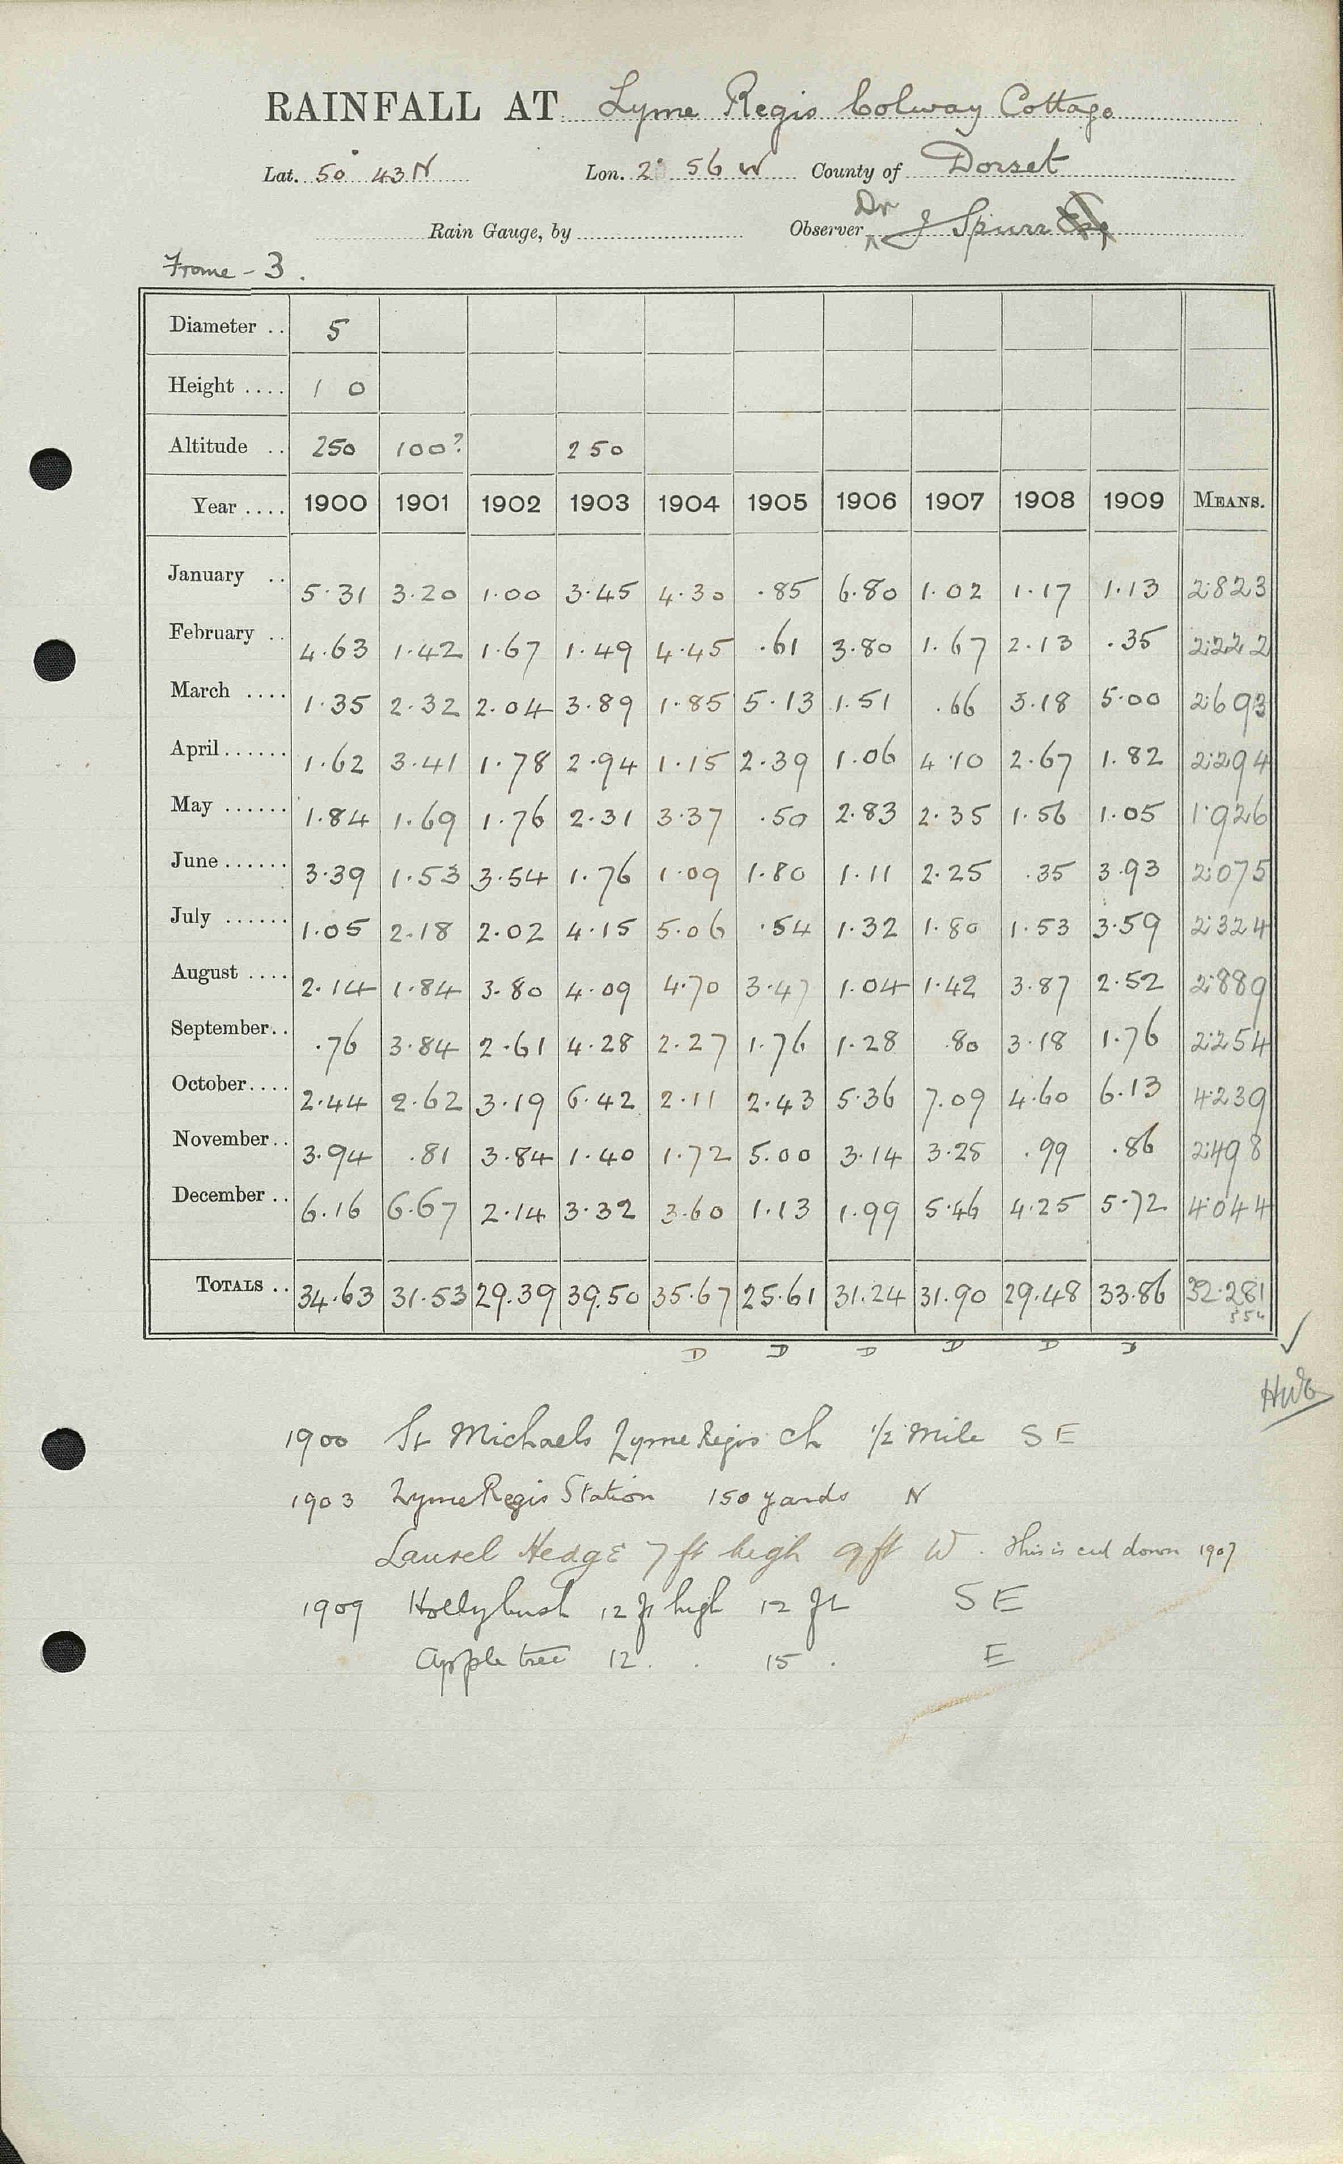 RAINFALL AT Lyme Regis Colway Cottage
Lat. 50° 43 N Lon. 2° 56 W County of Dorset
Rain Gauge, by Observer Dr J Spurr
Frome - 3.
Diameter .. 5
Height .... 1 0
Altitude .. 250 100? 250
Year .... 1900 1901 1902 1903 1904 1905 1906 1907 1908 1909 MEANS.
January .. 5.31 3.20 1.00 3.45 4.30 .85 6.80 1.02 1.17 1.13 2.823
February .. 4.63 1.42 1.67 1.49 4.45 .61 3.80 1.67 2.13 .35 2.222
March .... 1.35 2.32 2.04 3.89 1.85 5.13 1.51 .66 3.18 5.00 2.693
April ...... 1.62 3.41 1.78 2.94 1.15 2.39 1.06 4.10 2.67 1.82 2.294
May ...... 1.84 1.69 1.76 2.31 3.37 .50 2.83 2.35 1.56 1.05 1.926
June ...... 3.39 1.53 3.54 1.76 1.09 1.80 1.11 2.25 .35 3.93 2.075
July ...... 1.05 2.18 2.02 4.15 5.06 .54 1.32 1.80 1.53 3.59 2.324
August .... 2.14 1.84 3.80 4.09 4.70 3.47 1.04 1.42 3.87 2.52 2.889
September .. .76 3.84 2.61 4.28 2.27 1.76 1.28 .80 3.18 1.76 2.254
October .... 2.44 2.62 3.19 6.42 2.11 2.43 5.36 7.09 4.60 6.13 4.239
November .. 3.94 .81 3.84 1.40 1.72 5.00 3.14 3.28 .99 .86 2.498
December .. 6.16 6.67 2.14 3.32 3.60 1.13 1.99 5.46 4.25 5.72 4.044
TOTALS .. 34.63 31.53 29.39 39.50 35.67 25.61 31.24 31.90 29.48 33.86 32.281
D D D D D D
1900 St Michaels Lyme Regis Ch 1/2 Mile S E
1903 Lyme Regis Station 150 yards N
Laurel Hedge 7 ft high 9 ft W. This is cut down 1907
1909 Hollybush 12 ft high 12 ft S E
Apple tree 12 . . 15 . E